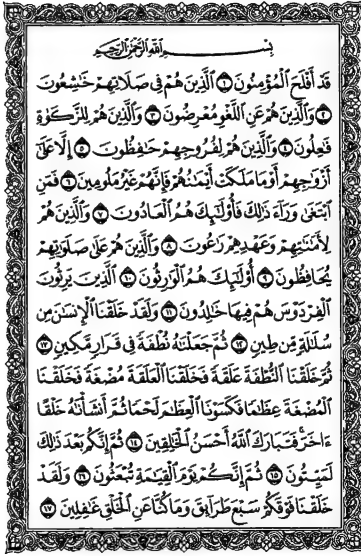 بِسْمِ اللَّهِ الرَّحْمَٰنِ الرَّحِيمِ
قَدْ أَفْلَحَ الْمُؤْمِنُونَ ١ الَّذِينَ هُمْ فِي صَلَاتِهِمْ خَاشِعُونَ
٢ وَالَّذِينَ هُمْ عَنِ اللَّغْوِ مُعْرِضُونَ ٣ وَالَّذِينَ هُمْ لِلزَّكَوٰةِ
فَاعِلُونَ ٤ وَالَّذِينَ هُمْ لِفُرُوجِهِمْ حَافِظُونَ ٥ إِلَّا عَلَىٰ
أَزْوَاجِهِمْ أَوْ مَا مَلَكَتْ أَيْمَانُهُمْ فَإِنَّهُمْ غَيْرُ مَلُومِينَ ٦ فَمَنِ
ابْتَغَىٰ وَرَاءَ ذَٰلِكَ فَأُولَٰئِكَ هُمُ الْعَادُونَ ٧ وَالَّذِينَ هُمْ
لِأَمَانَاتِهِمْ وَعَهْدِهِمْ رَاعُونَ ٨ وَالَّذِينَ هُمْ عَلَىٰ صَلَوَاتِهِمْ
يُحَافِظُونَ ٩ أُولَٰئِكَ هُمُ الْوَارِثُونَ ١٠ الَّذِينَ يَرِثُونَ
الْفِرْدَوْسَ هُمْ فِيهَا خَالِدُونَ ١١ وَلَقَدْ خَلَقْنَا الْإِنسَانَ مِن
سُلَالَةٍ مِّن طِينٍ ١٢ ثُمَّ جَعَلْنَاهُ نُطْفَةً فِي قَرَارٍ مَّكِينٍ ١٣
ثُمَّ خَلَقْنَا النُّطْفَةَ عَلَقَةً فَخَلَقْنَا الْعَلَقَةَ مُضْغَةً فَخَلَقْنَا
الْمُضْغَةَ عِظَامًا فَكَسَوْنَا الْعِظَامَ لَحْمًا ثُمَّ أَنشَأْنَاهُ خَلْقًا
ءَاخَرَ فَتَبَارَكَ اللَّهُ أَحْسَنُ الْخَالِقِينَ ١٤ ثُمَّ إِنَّكُم بَعْدَ ذَٰلِكَ
لَمَيِّتُونَ ١٥ ثُمَّ إِنَّكُمْ يَوْمَ الْقِيَامَةِ تُبْعَثُونَ ١٦ وَلَقَدْ
خَلَقْنَا فَوْقَكُمْ سَبْعَ طَرَائِقَ وَمَا كُنَّا عَنِ الْخَلْقِ غَافِلِينَ ١٧